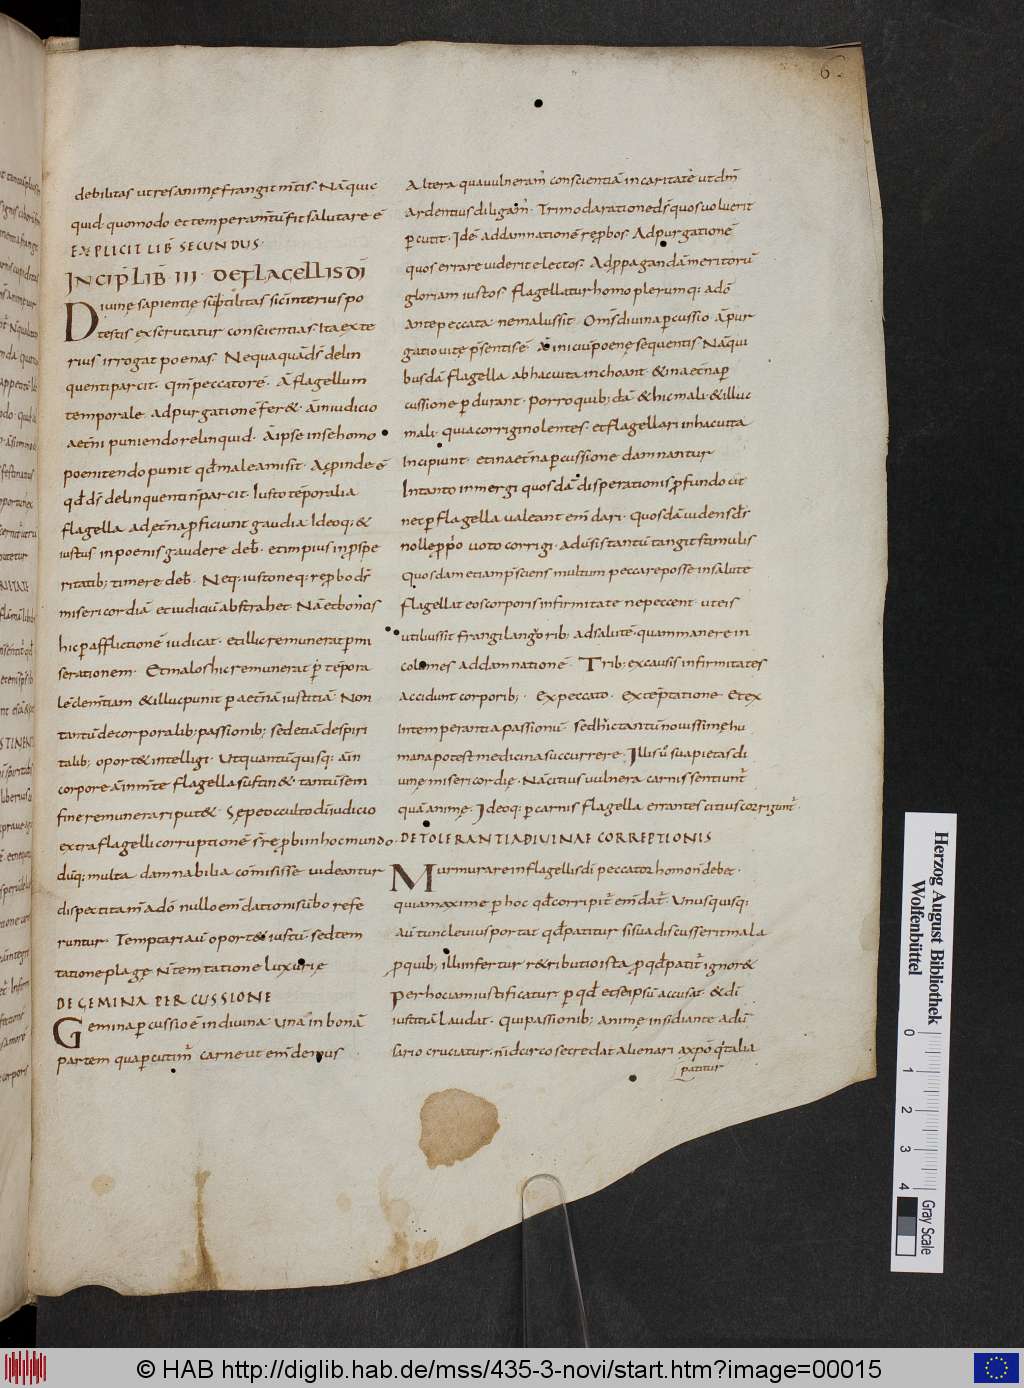 6
debilitas ut res animę frangit m̄tis Nā quic
quid quomodo et temperam̄tū fit salutare ē
EXPLICIT LIB̄ SECUNDUS·
INCIP̄ LIB̄ III· DE FLAGELLIS DĪ
Divinę sapientię subtilitas sic interius po
testis exscrutatur conscientias Ita exte
rius irrogat poenas. Nequaquā ds̄ delin
quenti parcit. qm̄ peccatorē. Aut flagellum
temporale ad purgationē fer&. aut iudicio
aet̄ni puniendo relinquid. aut ipse in se homo
poenitendo punit qd̄ male amisit. Ac proinde ē
qd̄ ds̄ delinquenti n̄ parcit. Iusto tēporalia
flagella ad ęt̄na proficiunt gaudia Ideoq; &
iustus in poenis gaudere deb&. et impius in prospe
ritatib; timere deb&. Neq; iusto neq; reprobo ds̄
misericordiā et iudiciū abstrahet Nā et bonos
hic per afflictionē iudicat. et illic remunerat p̄ mi
serationem. Et malos hic remunerat p̄ tēpora
lē clem̄tiam & illuc punit per aet̄nā iustitiā Non
tantū de corporalib; passionib; sed etiā de spiri
talib; oport& intelligi. Ut quantū quisq; aut in
corpore aut in m̄te flagella sustin& tantū sem
fine remunerari put&. Sępe occulto dī iudicio
extra flagelli corruptionē s̄t reprobi in hoc mundo.
dūq; multa damnabilia cōmisisse videantur
dispecti tam̄ a dō nullo em̄dationis ūbo refe
runtur. Temptari aū oport& iustū sed tem
tatione plagę N̄ temtatione luxurię
DE GEMINA PERCUSSIONE
Gemina percussio ē in divina Una in bonā
partem qua percutimur carne ut em̄demus
Altera qua vulneramur conscientiā in caritate ut dm̄
ardentius diligam̄. Trimoda ratione ds̄ quos voluerit
percutit. Idē ad damnationē reprobos. Ad purgationē
quos errare viderit electos. Ad propagandā meritorū
gloriam iustos flagellatur homo plerumq; a dō
ante peccata ne malus sit. Om̄s divina percussio aut pur
gatio vitę p̄sentis ē. Aut initiū poenę sequentis Nā qui
busdā flagella ab hac vita inchoant. & in aet̄na per
cussione perdurant. Porro quib;dā & hic mali. & illuc
mali. quia corrigi nolentes. et flagellari in hac vita
incipiunt. et in aet̄na percussione damnantur
In tanto inmergi quosdā disperationis profundo ut
nec per flagella valeant em̄dari. Quosdā videns ds̄
nolle proprio voto corrigi. adūsitantū tangit stimulis
Quosdam etiam p̄sciens multum peccare posse in salute
flagellat eos corporis infirmitate ne peccent. ut eis
utilius sit frangi languorib; ad salutē. quam manere in
colomes ad damnationē. Trib; ex causis infirmitates
accidunt corporib;. Ex peccato. Ex tēptatione. Et ex
intemperantia passionū. sed huic tantū novissimę hu
mana potest medicina succurrere. Illis ū sua pietas di
vinę misericordię. Nā citius vulnera carnis sentiunt̄
quā animę. Ideoq; per carnis flagella errantes citius corrigunt̄.
DE TOLERANTIA DIVINAE CORREPTIONIS
Murmurare in flagellis dī peccator homo n̄ debet.
quia maxime per hoc qd̄ corripit̄ em̄dat̄. Unusquisq;
aū tunc levius portat qd̄ patitur si sua discusserit mala
pro quib; illi infertur retributio ista pro qd̄ patit̄ ignor&
Per hoc iam iustificatur per qd̄ et se ipsū accusat. & dī
iustitiā laudat. Qui passionib; animę insidiante adū
sario cruciatur. n̄ idcirco se credat alienari a xpō qr̄ talia
patitur
Herzog August Bibliothek
Wolfenbüttel
0 1 2 3 4
Gray Scale
© HAB http://diglib.hab.de/mss/435-3-novi/start.htm?image=00015